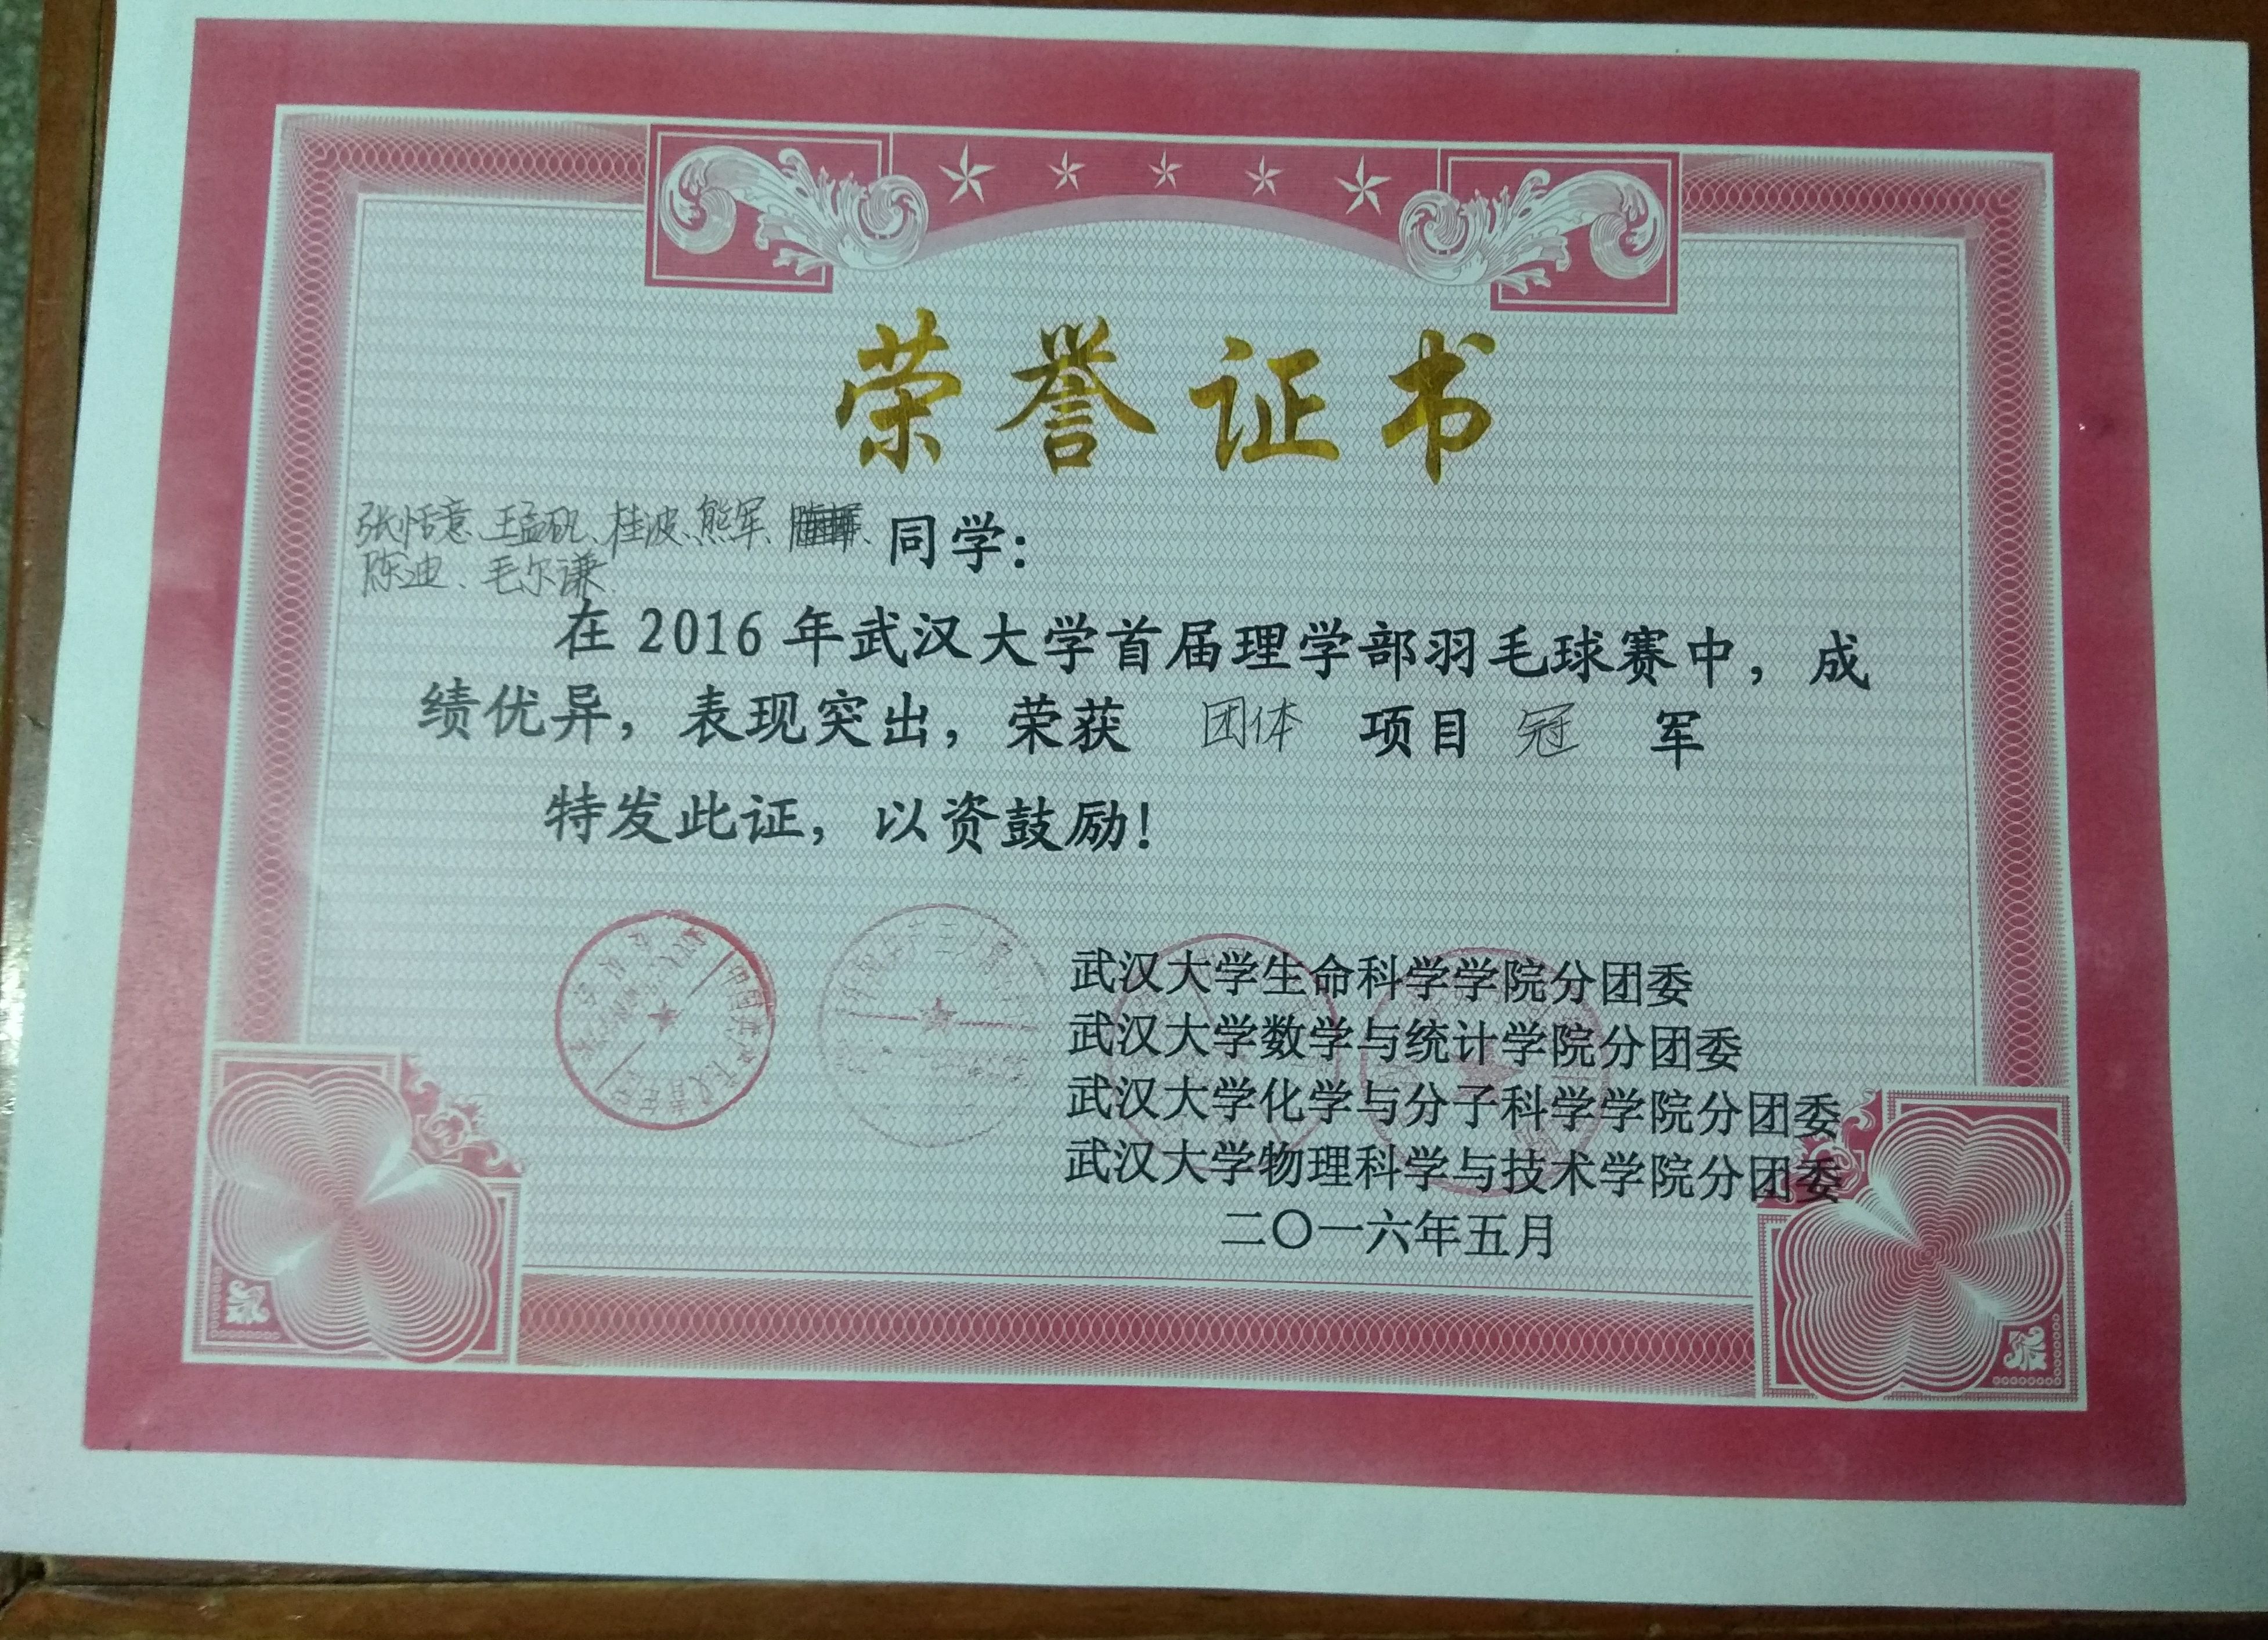 荣誉证书
张恬意、王孟矾、桂波、熊军、同学：
陈迪、毛尔谦
在 2016 年武汉大学首届理学部羽毛球赛中，成
绩优异，表现突出，荣获 团体 项目 冠 军
特发此证，以资鼓励！
武汉大学生命科学学院分团委
武汉大学数学与统计学院分团委
武汉大学化学与分子科学学院分团委
武汉大学物理科学与技术学院分团委
二〇一六年五月